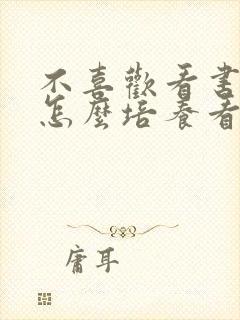 不喜歡看书
怎麼培養看
庸耳